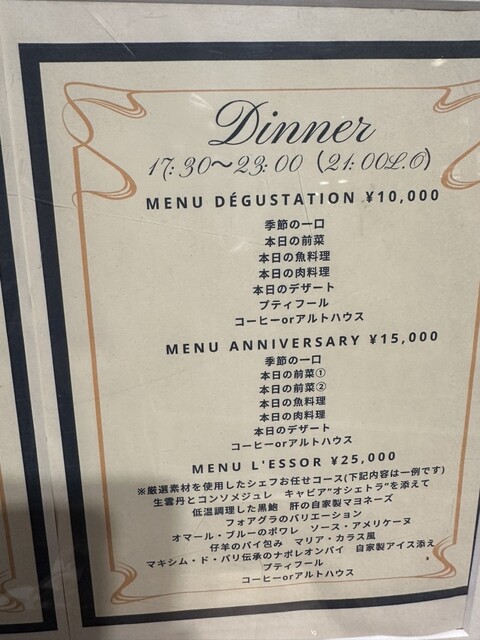 Dinner
17:30〜23:00（21:00L.O）
MENU DÉGUSTATION ¥10,000
季節の一口
本日の前菜
本日の魚料理
本日の肉料理
本日のデザート
プティフール
コーヒーorアルトハウス
MENU ANNIVERSARY ¥15,000
季節の一口
本日の前菜①
本日の前菜②
本日の魚料理
本日の肉料理
本日のデザート
コーヒーorアルトハウス
MENU L'ESSOR ¥25,000
※厳選素材を使用したシェフお任せコース(下記内容は一例です)
生雲丹とコンソメジュレ　キャビア"オシェトラ"を添えて
低温調理した黒鮑　肝の自家製マヨネーズ
フォアグラのバリエーション
オマール・ブルーのポワレ　ソース・アメリケーヌ
仔羊のパイ包み　マリア・カラス風
マキシム・ド・パリ伝承のナポレオンパイ　自家製アイス添え
プティフール
コーヒーorアルトハウス